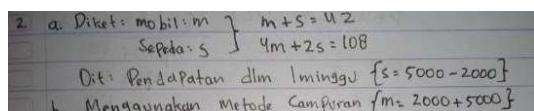 2. a. Diket : mobil : m } m + s = 42
Sepeda : s } 4m + 2s = 108
Dit : Pendapatan dlm 1 minggu {s = 5000 - 2000}
b. Menggunakan Metode Campuran {m = 2000 + 5000}